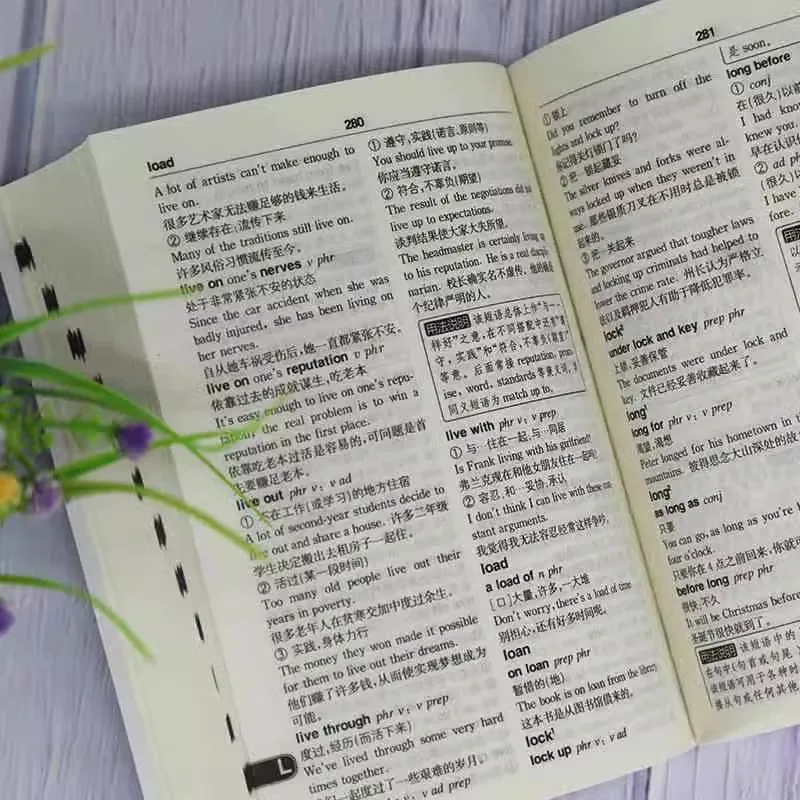 load
280
A lot of artists can't make enough to
live on.
很多艺术家无法赚足够的钱来生活。
② 继续存在；流传下来
Many of the traditions still live on.
许多风俗习惯流传至今。
live on one's nerves v phr
处于非常紧张不安的状态
Since the car accident when she was
badly injured, she has been living on
her nerves.
自从她车祸受伤后，她一直都紧张不安。
live on one's reputation v phr
依靠过去的成就谋生，吃老本
It's easy enough to live on one's repu-
tation, the real problem is to win a
reputation in the first place.
依靠吃老本过活是容易的，可问题是首
要赚足老本。
live out phr v; v prep
① 不在工作(或学习)的地方住宿
A lot of second-year students decide to
live out and share a house. 许多二年级
学生决定搬出去租房子一起住。
② 活过(某一段时间)
Too many old people live out their
years in poverty.
很多老年人在贫寒交加中度过余生。
③ 实践，身体力行
The money they won made it possible
for them to live out their dreams.
他们赚了许多钱，从而使实现梦想成为
可能。
live through phr v; v prep
度过，经历(而活下来)
We've lived through some very hard
times together.
我们一起度过了一些艰难的岁月。
phr v; v ad prep
L
① 遵守，实践(诺言、原则等)
You should live up to your promise.
你应当遵守诺言。
② 符合，不辜负(期望)
The result of the negotiations did not
live up to expectations.
谈判结果使大家大失所望。
The headmaster is certainly living up
to his reputation. He is a real discipli-
narian. 校长确实名不虚传，他的确是
个纪律严明的人。
用法说明 该短语总体上作"与…一
样好"之意，在不同搭配中还有"遵
守，实践"和"符合，不辜负(期望)"
等意。后面常接 reputation, prom-
ise, word, standards 等意义词，其
同义短语为 match up to。
live with phr v; v prep
① 与…住在一起，与…同居
Is Frank living with his girlfriend?
弗兰克现在和他女朋友住在一起吗？
② 容忍，和…妥协，承认
I don't think I can live with these con-
stant arguments.
我觉得我无法容忍经常这样争吵。
load
a load of n phr
[口]大量，许多，一大堆
Don't worry, there's a load of time.
别担心，还有好多时间呢。
loan
on loan prep phr
暂借的(地)
The book is on loan from the library.
这本书是从图书馆借来的。
lock¹
lock up phr v; v ad
281
① 锁上
Did you remember to turn off the
lights and lock up?
你记得关灯锁门了吗？
② 把…锁起藏妥
The silver knives and forks were al-
ways locked up when they weren't in
use. 那些银质刀叉在不用时总是被锁
起来的。
③ 把…关起来
The governor argued that tougher laws
and locking up criminals had helped to
lower the crime rate. 州长认为严格立
法以及羁押犯人有助于降低犯罪率。
lock²
under lock and key prep phr
上锁，妥善保管
The documents were under lock and
key. 文件已经妥善收藏起来了。
long¹
long for phr v; v prep
渴望，渴想
Peter longed for his hometown in the
mountains. 彼得思念大山深处的故
long²
as long as conj
只要
You can go, as long as you're
four o'clock.
只要你在4点之前回来，你就可
before long prep phr
很快，不久
It will be Christmas before
圣诞节很快就到了。
用法说明 该短语中的
在句中(句首或句尾
该短语可用于各种时
接从句或任何其他
是 soon。
long before
① conj
在(很久)以前
I had know
knew you.
早在认识
② ad ph
(很久)以
I have
fore.